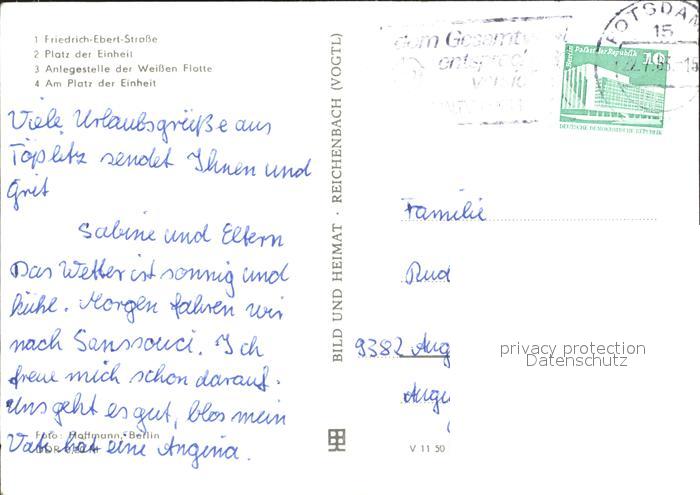 1 Friedrich-Ebert-Straße
2 Platz der Einheit
3 Anlegestelle der Weißen Flotte
4 Am Platz der Einheit
Viele Urlaubsgrüße aus
Töplitz sendet Ihnen und
Grit
Sabine und Eltern
Das Wetter ist sonnig und
kühl. Morgen fahren wir
nach Sanssouci. Ich
freue mich schon darauf.
Uns geht es gut, blos mein
Vati hat eine Angina.
Foto: Hoffmann, Berlin
BILD UND HEIMAT · REICHENBACH (VOGTL)
V 11 50
dem Gesamt
POTSDAM
15
Berlin Palast der Republik
10
DEUTSCHE DEMOKRATISCHE REPUBLIK
Familie
Rud
9382 Aug
Augu
privacy protection
Datenschutz